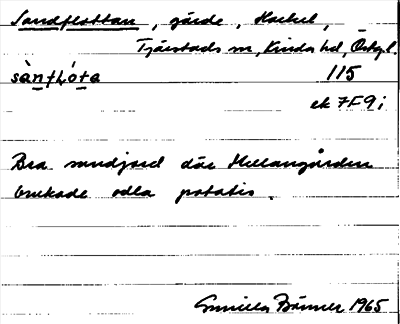 Sandflottan, gärde, Hackel,
Tjärstads sn, Kinda hd, Östgl.
115
ek 7F9i
Bra sandjord där Mellangården
brukade odla potatis.
Gunilla 1965